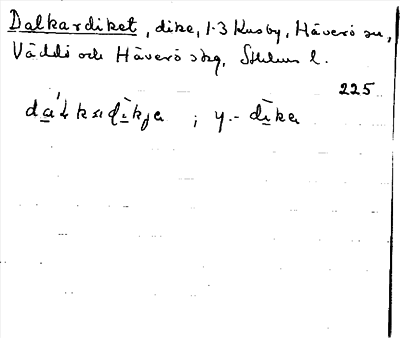 Dalkardiket, dike, 1-3 Kusby, Häverö sn,
Väddö och Häverö skg, Sthlms l.
225
da'ɫkadi̱kja ; y.- di̱ka